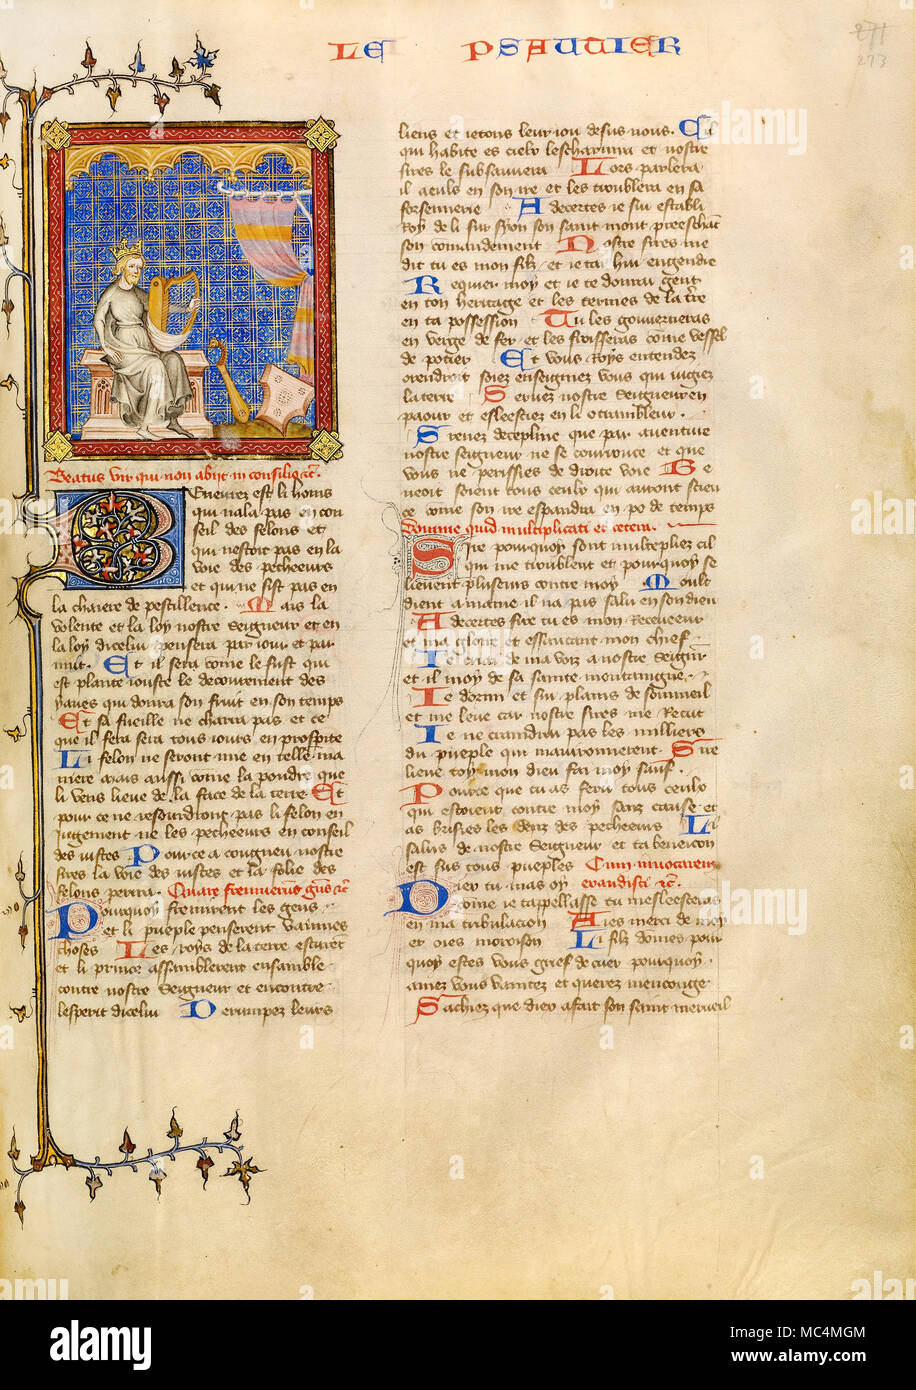 LE PSAUTIER
271
273
Beatus vir qui non abijt in consilio &c.
Beneurez est li homs
qui nala pas en con
seil des felons et
qui nestoit pas en la
voie des pecheeurs
et qui ne sist pas en
la chaiere de pestillence. Mais la
volente et la loy nostre Seigneur et en
la loy dicelui pensera par iour et par
nuit. Et il sera come le fust qui
est plante iouste le decourement des
yaues qui donra son fruit en son temps
Et sa fueille ne charra pas et ce
que il fera sera tous iours en prosperite
Li felon ne seront mie en telle ma
niere mais aussi come la poudre que
li vens lieve de la face de la terre Et
pour ce ne resourdront pas li felon en
iugement ne les pecheeurs en conseil
des iustes Pour ce a congneu nostre
sires la voie des iustes et la folie des
felons perira. Quare fremuerunt gens &c
Pourquoy fremirent les gens
et li pueple penserent vaines
choses Les roys de la terre esturet
et li prince assamblerent ensamble
contre nostre Seigneur et encontre
lesperit dicelui Derumpez leurs
liens et ietons leur iou desus nous. Cil
qui habite es cielx les charnira et nostre
sires le subsannera Lors parlera
il a eulx en son ire et les troublera en sa
forsennerie Adecertes ie sui establi
Roy de li sur syon son saint mont preeschat
son comandement Nostre sires me
dit tu es mon filz et ie tai hui engendre
Requier moy et ie te donrai gent
en ton heritage et les termes de la tre
en ta possession Tu les gouverneras
en verge de fer et les froisseras come vessel
de potier Et vous Roys entendez
orendroit soiez enseignez vous qui iugiez
la terre Servez nostre Seigneur en
paour et esleesciez en li o trambleur.
Prenez decepline que par aventure
nostre seigneur ne se courrouce et que
vous ne perissies de droite voie Be
neoit soient tous ceulx qui auront fiance
ce come son ire espandra en po de temps
Domine quid multiplicati et cetera.
Sire pourquoy sont multepliez cil
qui me troublent et pourquoy se
lievent plusieurs contre moy Moult
dient a mame il na pas salu en son dieu
Adecertes sire tu es mon Receveeur
et ma gloire et essaucant mon chief
Ie criai de ma voiz a nostre Seignr
et il moy de sa sainte montaingne
Ie dormi et sui plains de sommeil
et me leve car nostre sires me Recut
Ie ne craindrai pas les milliers
du pueple qui mavironnerent. Sire
lieve toy mon dieu fai moy sauf.
Pource que tu as feru tous ceulx
qui estoient contre moy sanz cause et
as brisies les denz des pecheeurs Li
salus de nostre Seigneur et ta beneicon
est sus tous pueples Cum invocarem
Diex tu mas oy exaudisti &c.
come ie tappellasse tu mesleesceras
en ma tribulacion Aies merci de moy
et oies moroison Li filz domes pour
quoy estes vous grief de cuer pourquoy
amez vous vanitez et querez menconge
Sachiez que diex a fait son saint merveil
alamy
Image ID: MC4MGM
www.alamy.com